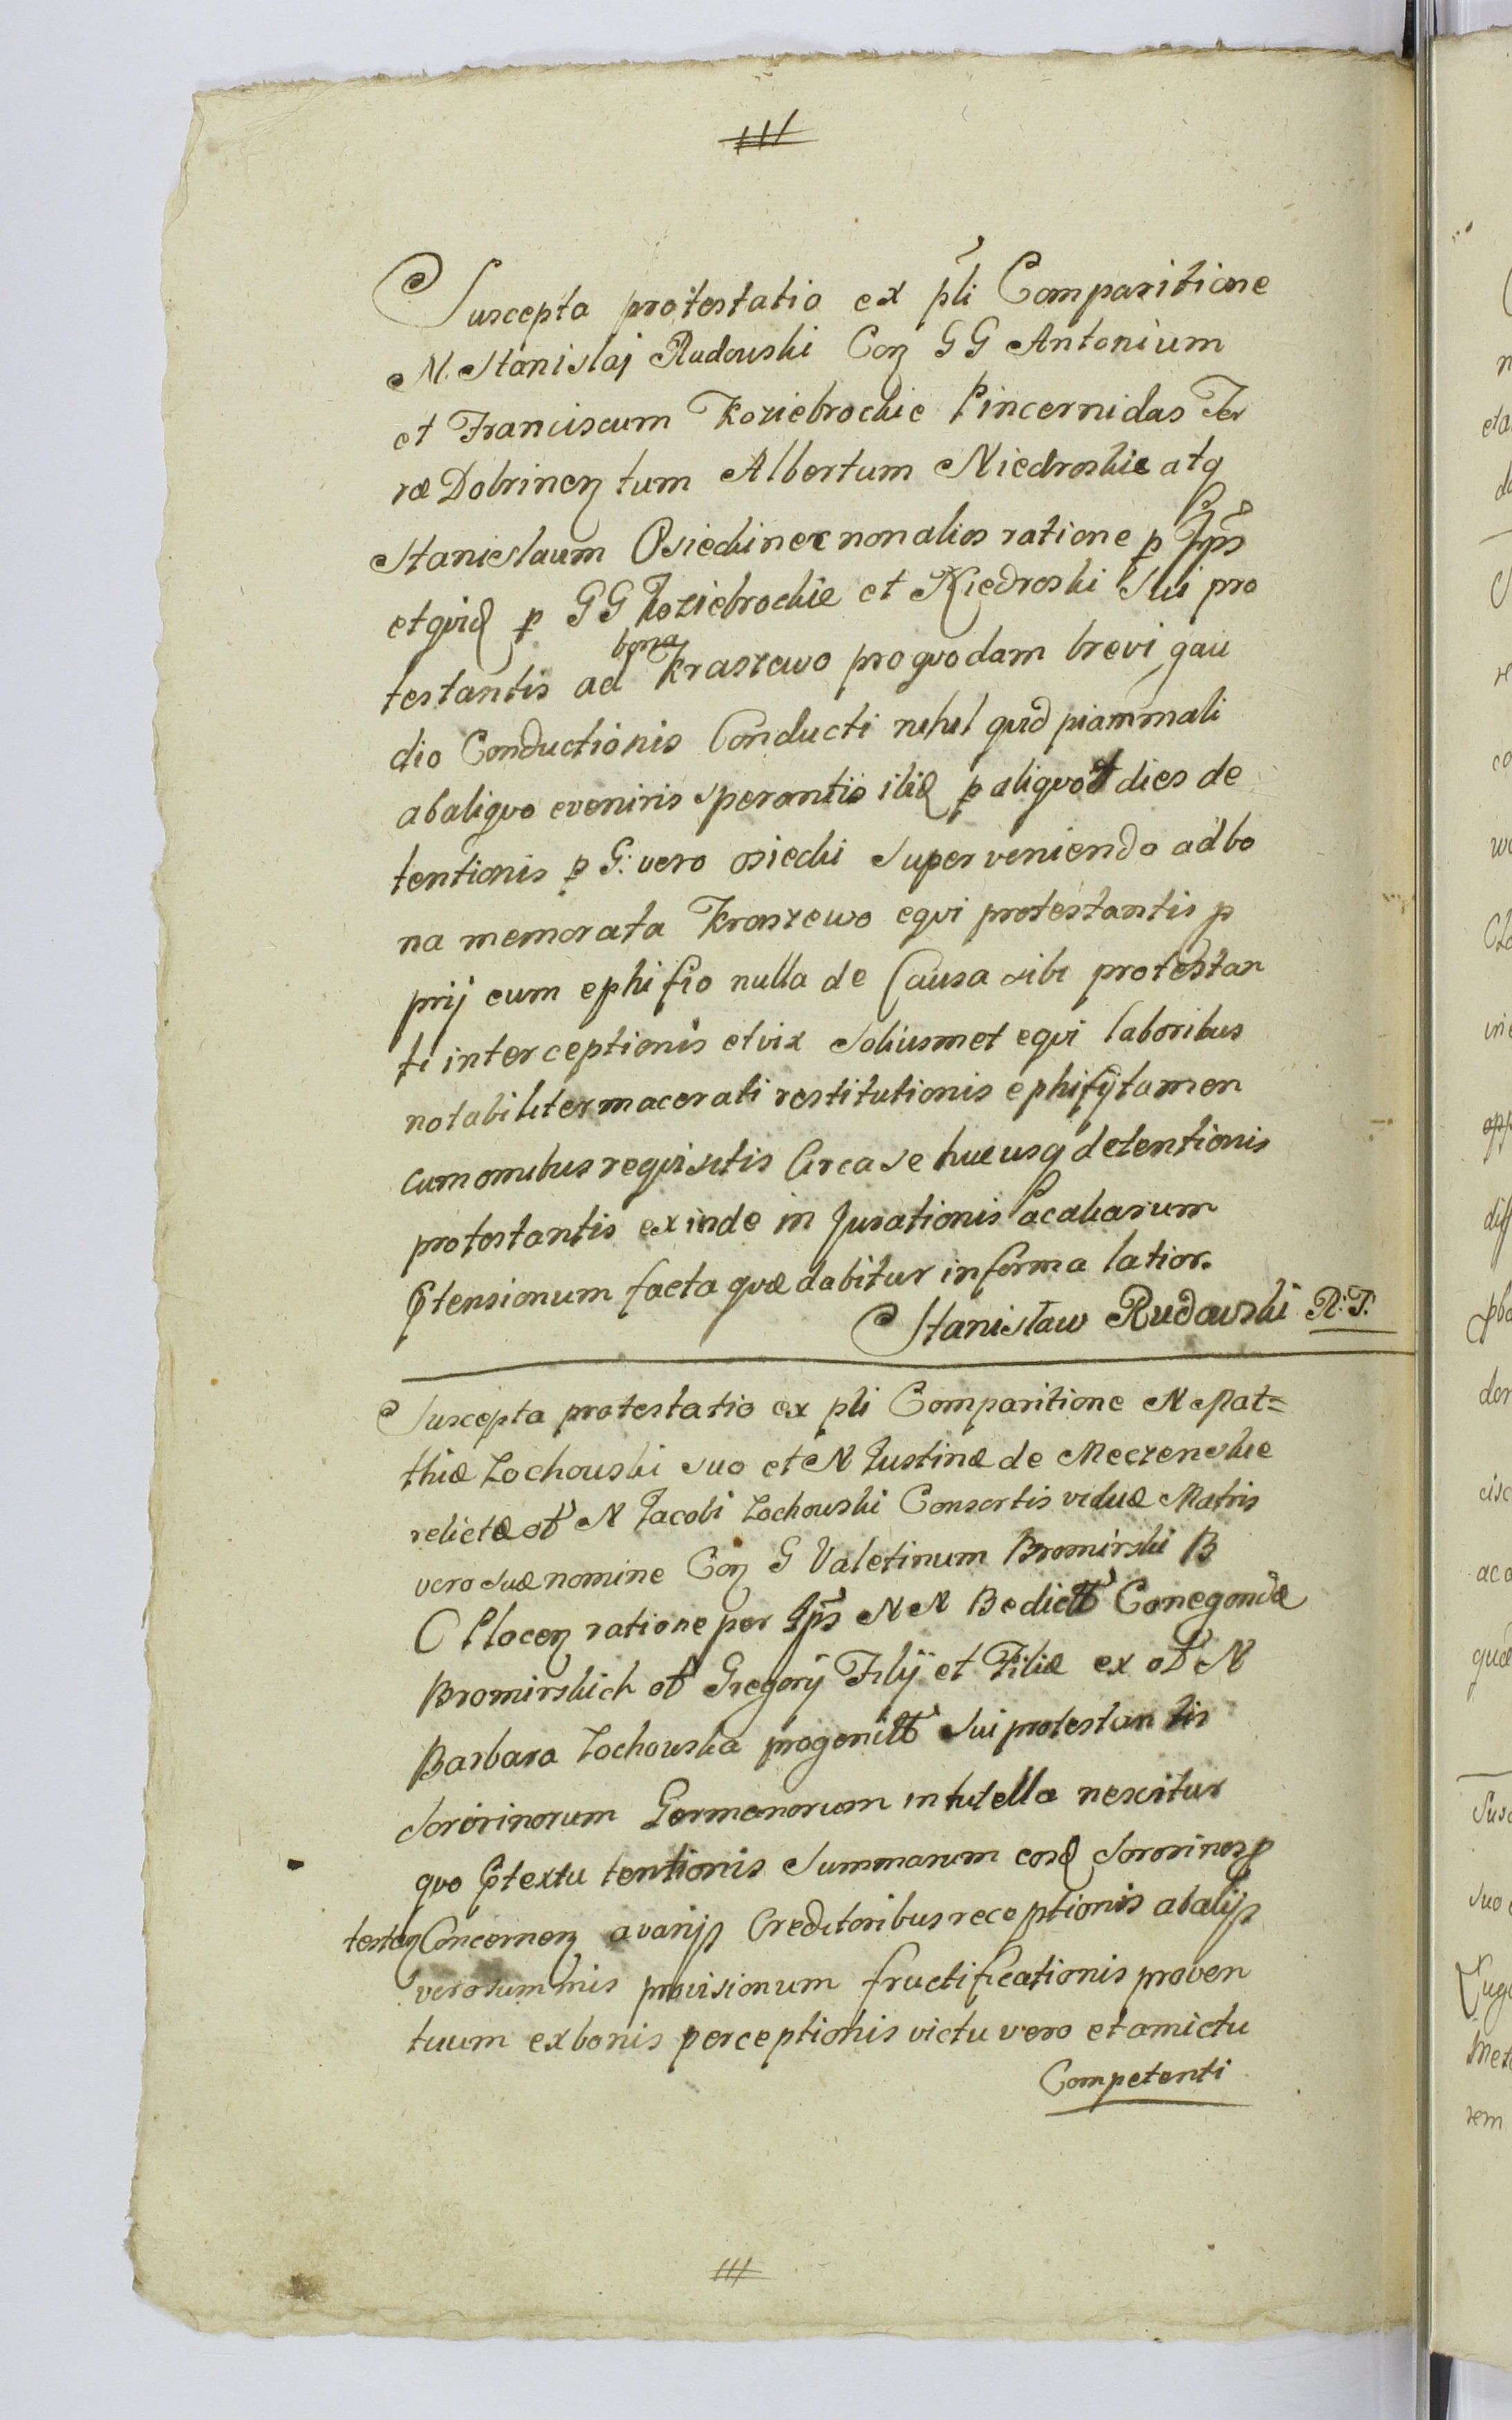 Suscepta protestatio ex pli Comparitione
N. Stanislaj Rudouski Con GG Antonium
et Franciscum Koziebrockie Pincernidas Ter
ræ Dobrinen tum Albertum Niedroskie atq
Stanislaum Osiecki nec non alios ratione p Ips
et quid p GG Koziebrockie et Niedroski Sui pro
testantis ad bona Kraszewo pro quodam brevi gau
dio Conductionis Conducti nihil quid piam mali
ab aliquo eveniris sperantis ibid p aliquot dies de
tentionis p G: vero osiecki Super veniendo ad bo
na memorata Kraszewo equi protestantis p
prij cum ephifio nulla de Causa sibi protestan
ti interceptionis et vix Soliusmet equi laboribus
notabiliter macerati restitutionis ephifij tamen
cum omnibus requisitis Circa se huc usq detentionis
protestantis ex inde in Jurationis Cacaliarum
Ptensionum facta quæ dabitur in forma latior.
Stanisław Rudowski R: T.
Suscepta protestatio ex pli Comparitione N Mat=
thiæ Lochouski suo et N Justinæ de Meczenskie
relictæ ol N Jacobi Lochouski Consortis viduæ Matris
vero suæ nomine Con G Valetinum Bromirski B
C Plocen ratione per Ips N N Bedictt Conegondæ
Bromirskich ol Gregorij Filij et Filiæ ex ol N
Barbara Lochouska progenitt Sui protestantis
Sororinorum Germanorum in tutella nescitur
quo Ptextu tentionis Summarum eosd Sororinos p
testan Concernen a varijs Creditoribus receptionis ab alijs
vero summis provisionum fructificationis proven
tuum ex bonis perceptionis victu vero et amictu
Competenti